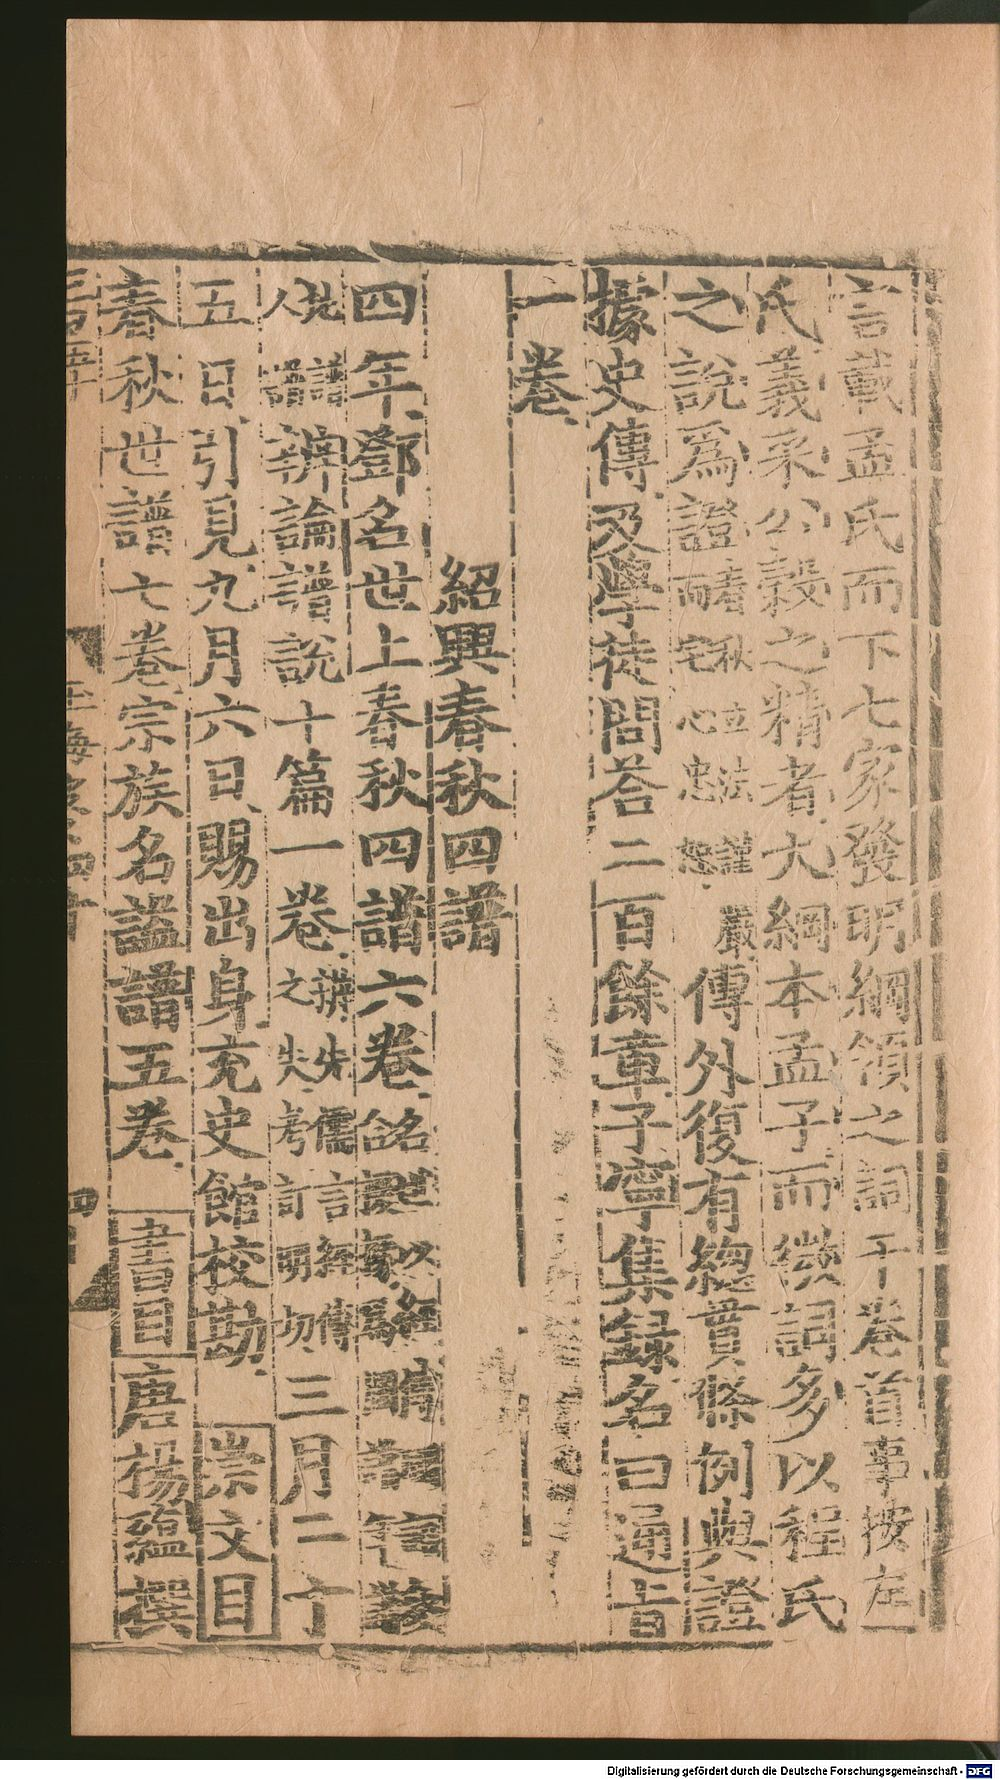 言載孟氏而下七家發明綱領之詞于卷首事按左
氏義采公穀之精者大綱本孟子而微詞多以程氏
之說爲證
傳外復有總貫條例典證
據史傳及學徒問荅二百餘章子寧集録名曰通旨
一卷
紹興春秋四譜
四年鄧名世上春秋四譜六卷
辨論譜說十篇一卷辨先儒言經傳之失考訂明切三月二十
五日引見九月六日賜出身充史館校勘崇文目
春秋世譜七卷宗族名謚譜五卷書目唐楊蘊撰
Digitalisierung gefördert durch die Deutsche Forschungsgemeinschaft - DFG